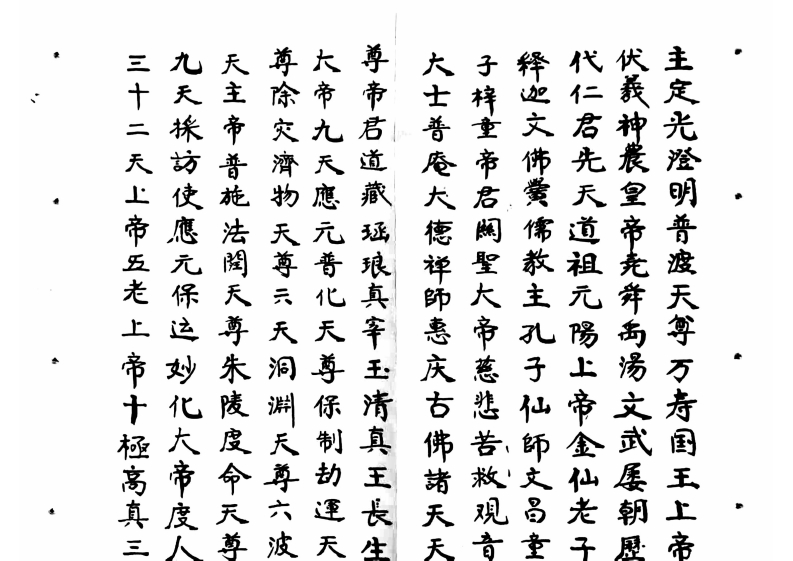 主定光澄明普渡天尊万寿国王上帝
伏羲神農皇帝尭舜禹湯文武屡朝歷
代仁君先天道祖元陽上帝金仙老子
释迦文佛黌儒教主孔子仙師文昌童
子梓童帝君関聖大帝慈悲苦救观音
大士普庵大德禅師惠庆古佛諸天天
尊帝君道藏琅真宰玉清真王長生
大帝九天應元普化天尊保制劫運天
尊除灾濟物天尊云天洞渊天尊六波
天主帝普施法閏天尊朱陵度命天尊
九天採訪使應元保运妙化大帝度人
三十二天上帝五老上帝十極高真三